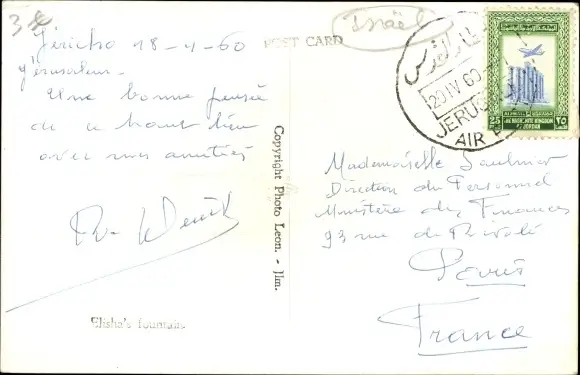 3 €
Israël
Jéricho 18-4-60
Jérusalem.
Une bonne pensée
de ce haut lieu
avec mes amitiés
POST CARD
Copyright Photo Leon. - Jlm.
Elisha's fountain
القدس
20 IV 60
JERUS
AIR
25
٢٥
THE HASHEMITE KINGDOM
OF JORDAN
Mademoiselle Saulnier
Direction du Personnel
Ministère des Finances
93 rue de Rivoli
Paris
France